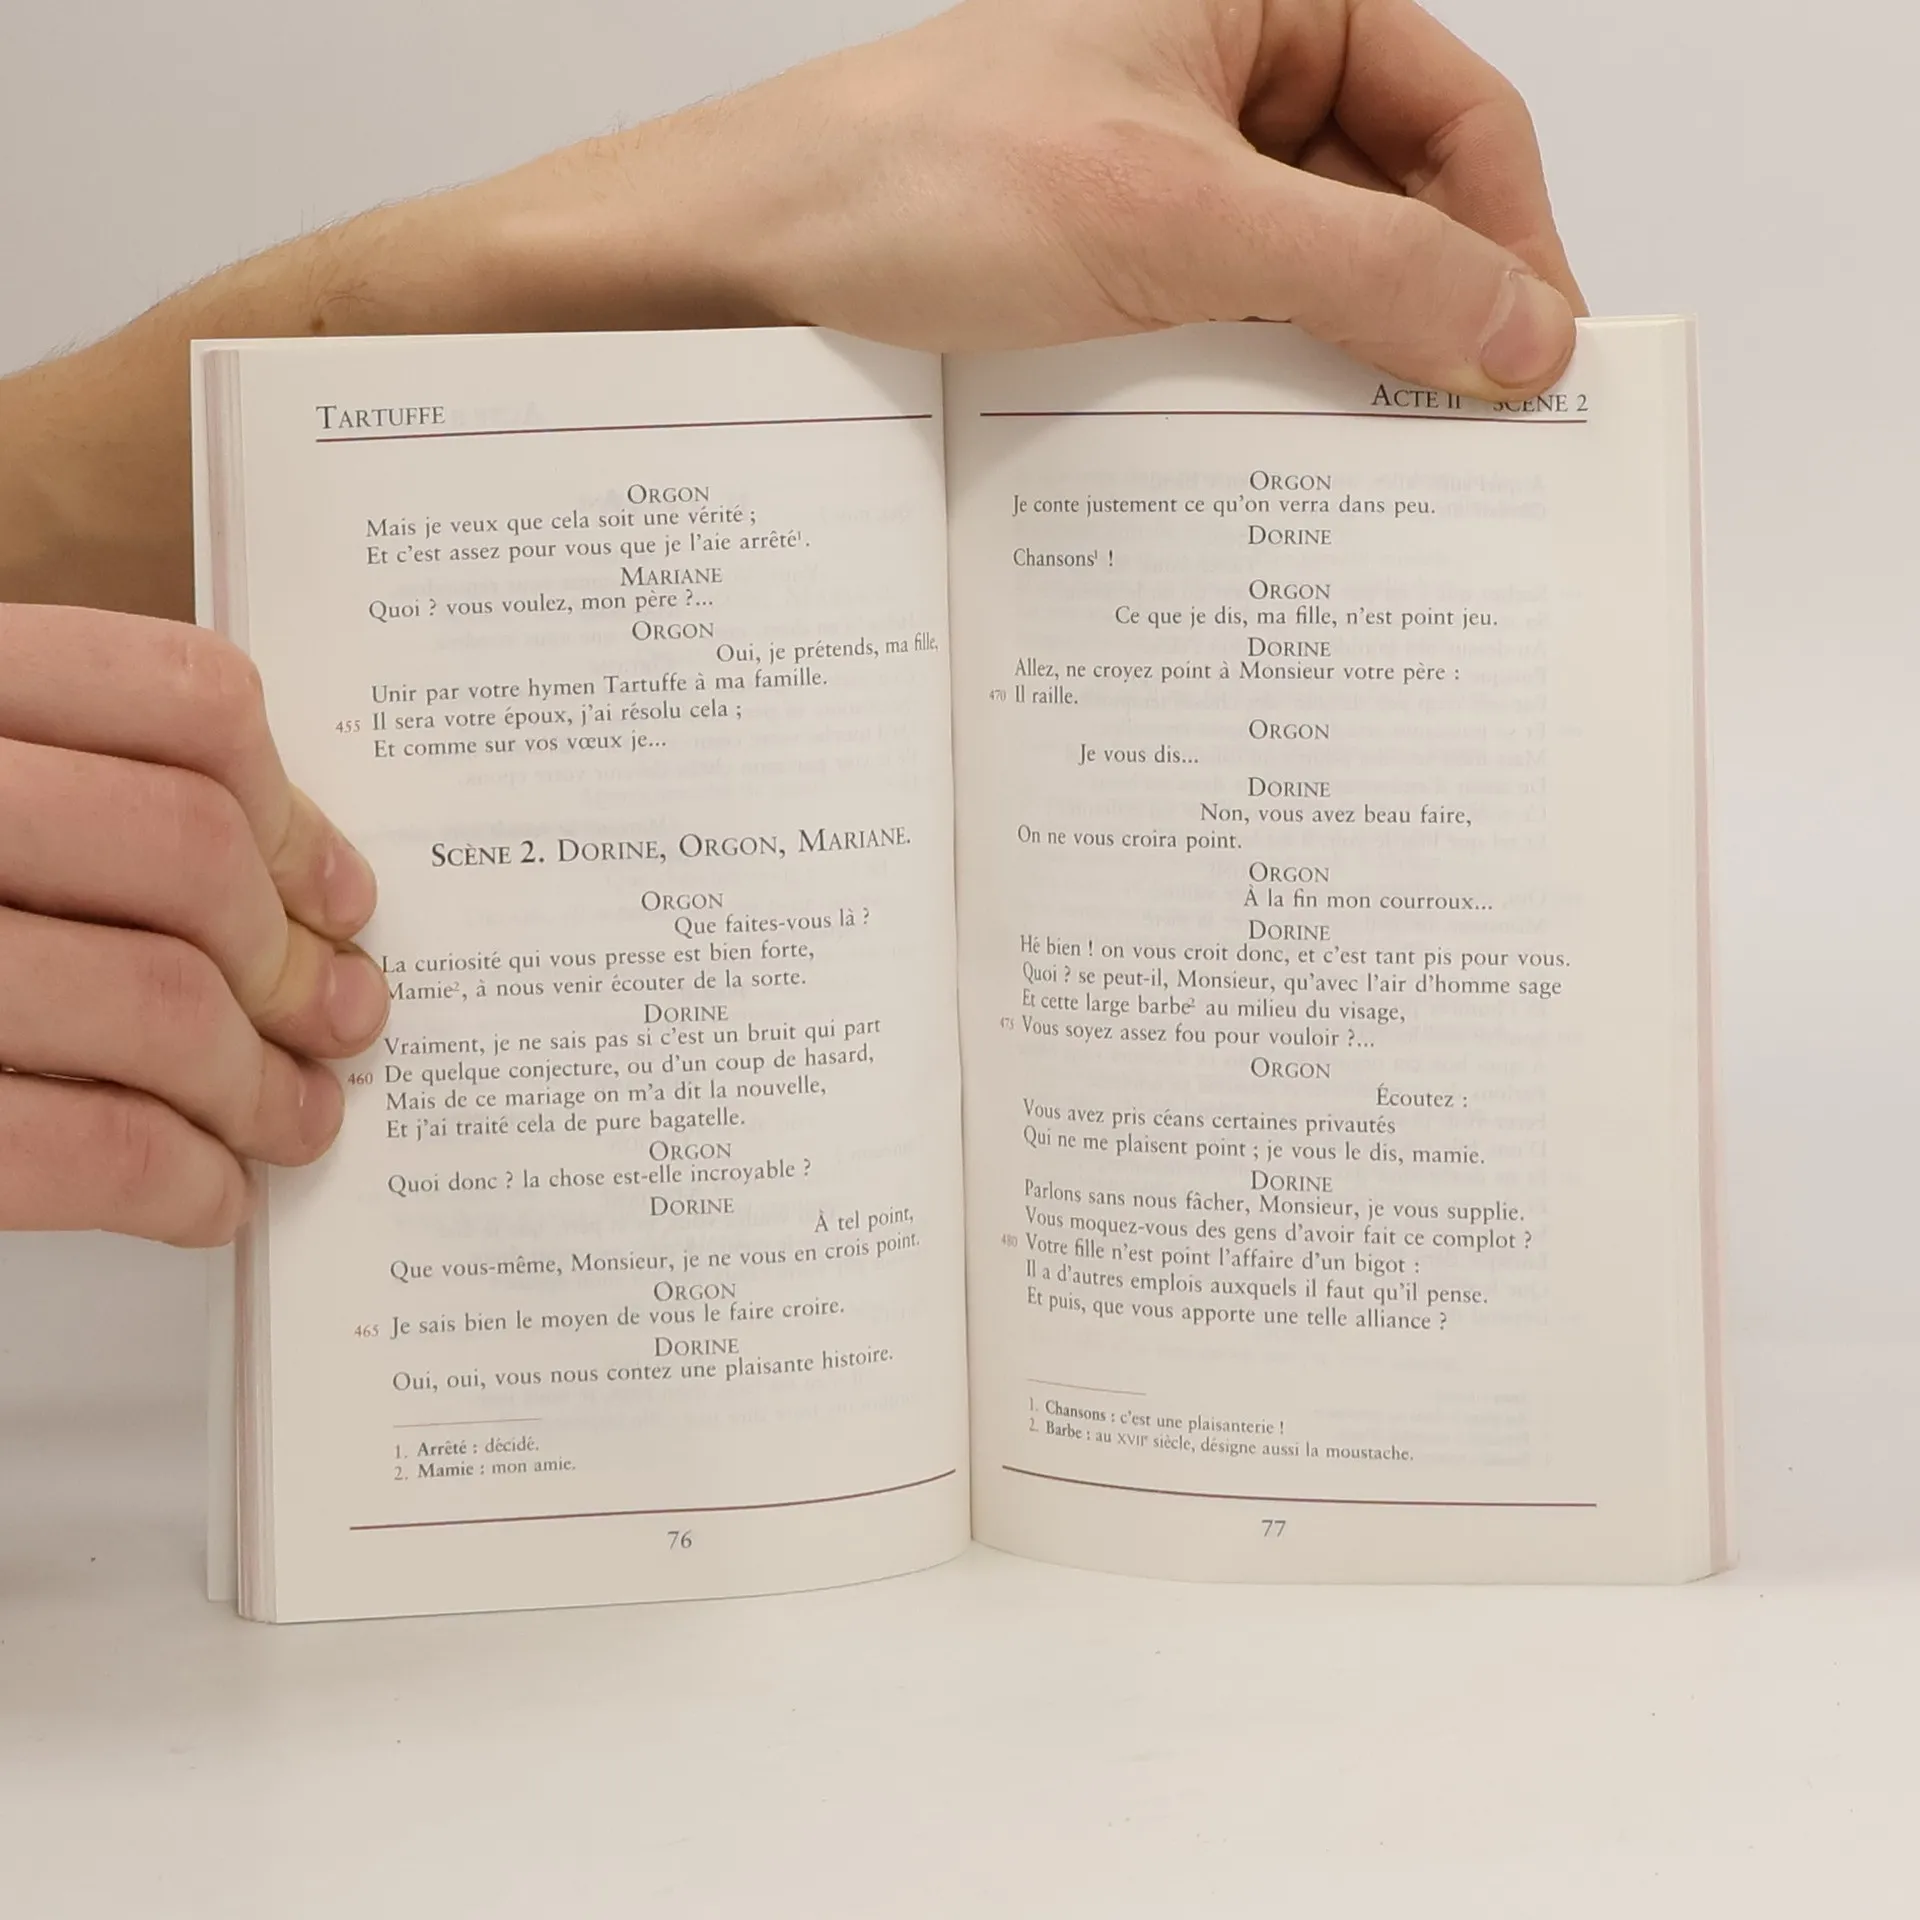 TARTUFFE
ORGON
Mais je veux que cela soit une vérité ;
Et c'est assez pour vous que je l'aie arrêté¹.
MARIANE
Quoi ? vous voulez, mon père ?...
ORGON
Oui, je prétends, ma fille,
Unir par votre hymen Tartuffe à ma famille.
455 Il sera votre époux, j'ai résolu cela ;
Et comme sur vos vœux je...
SCÈNE 2. DORINE, ORGON, MARIANE.
ORGON
Que faites-vous là ?
La curiosité qui vous presse est bien forte,
Mamie², à nous venir écouter de la sorte.
DORINE
Vraiment, je ne sais pas si c'est un bruit qui part
460 De quelque conjecture, ou d'un coup de hasard,
Mais de ce mariage on m'a dit la nouvelle,
Et j'ai traité cela de pure bagatelle.
ORGON
Quoi donc ? la chose est-elle incroyable ?
DORINE
À tel point,
Que vous-même, Monsieur, je ne vous en crois point.
ORGON
465 Je sais bien le moyen de vous le faire croire.
DORINE
Oui, oui, vous nous contez une plaisante histoire.
1. Arrêté : décidé.
2. Mamie : mon amie.
76
ACTE II SCÈNE 2
ORGON
Je conte justement ce qu'on verra dans peu.
DORINE
Chansons¹ !
ORGON
Ce que je dis, ma fille, n'est point jeu.
DORINE
Allez, ne croyez point à Monsieur votre père :
470 Il raille.
ORGON
Je vous dis...
DORINE
Non, vous avez beau faire,
On ne vous croira point.
ORGON
À la fin mon courroux...
DORINE
Hé bien ! on vous croit donc, et c'est tant pis pour vous.
Quoi ? se peut-il, Monsieur, qu'avec l'air d'homme sage
Et cette large barbe² au milieu du visage,
475 Vous soyez assez fou pour vouloir ?...
ORGON
Écoutez :
Vous avez pris céans certaines privautés
Qui ne me plaisent point ; je vous le dis, mamie.
DORINE
Parlons sans nous fâcher, Monsieur, je vous supplie.
Vous moquez-vous des gens d'avoir fait ce complot ?
480 Votre fille n'est point l'affaire d'un bigot :
Il a d'autres emplois auxquels il faut qu'il pense.
Et puis, que vous apporte une telle alliance ?
1. Chansons : c'est une plaisanterie !
2. Barbe : au XVIIᵉ siècle, désigne aussi la moustache.
77